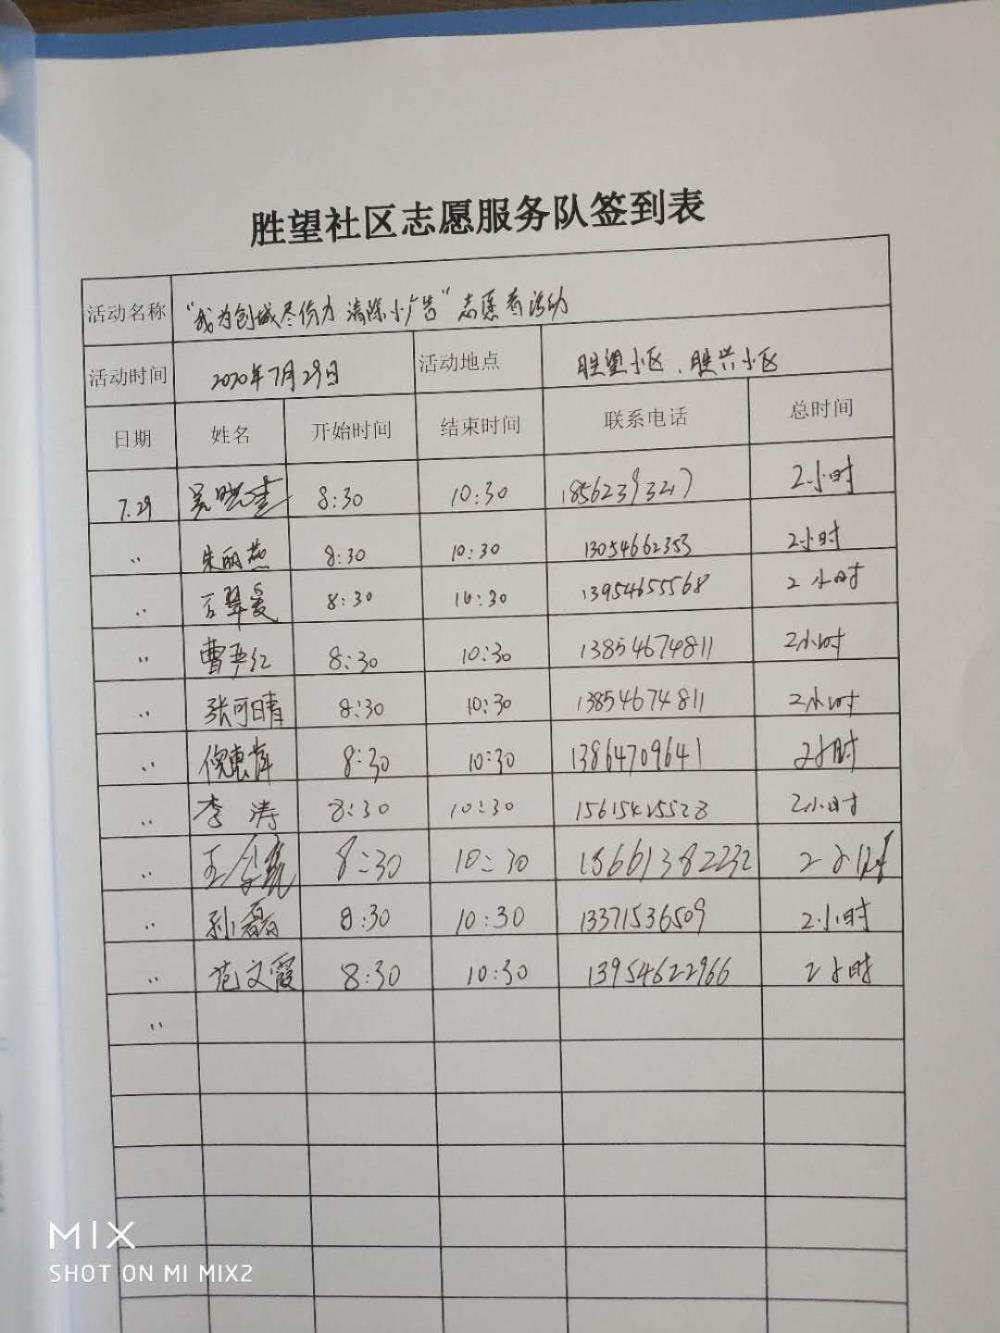 胜望社区志愿服务队签到表
活动名称 "我为创城尽份力 清除小广告"志愿者活动
活动时间 2020年7月29日 活动地点 胜望小区、胜兴小区
日期 姓名 开始时间 结束时间 联系电话 总时间
7.29 8:30 10:30 2小时
〃 朱丽燕 8:30 10:30 13054662353 2小时
〃 8:30 10:30 13954655568 2小时
〃 曹严红 8:30 10:30 13854674811 2小时
〃 张可晴 8:30 10:30 13854674811 2小时
〃 倪惠萍 8:30 10:30 13864709641 2小时
〃 李涛 8:30 10:30 15615425528 2小时
〃 8:30 10:30 15661382232 2小时
〃 孙磊 8:30 10:30 13371536509 2小时
〃 范文霞 8:30 10:30 13954622966 2小时
〃
MIX
SHOT ON MI MIX2